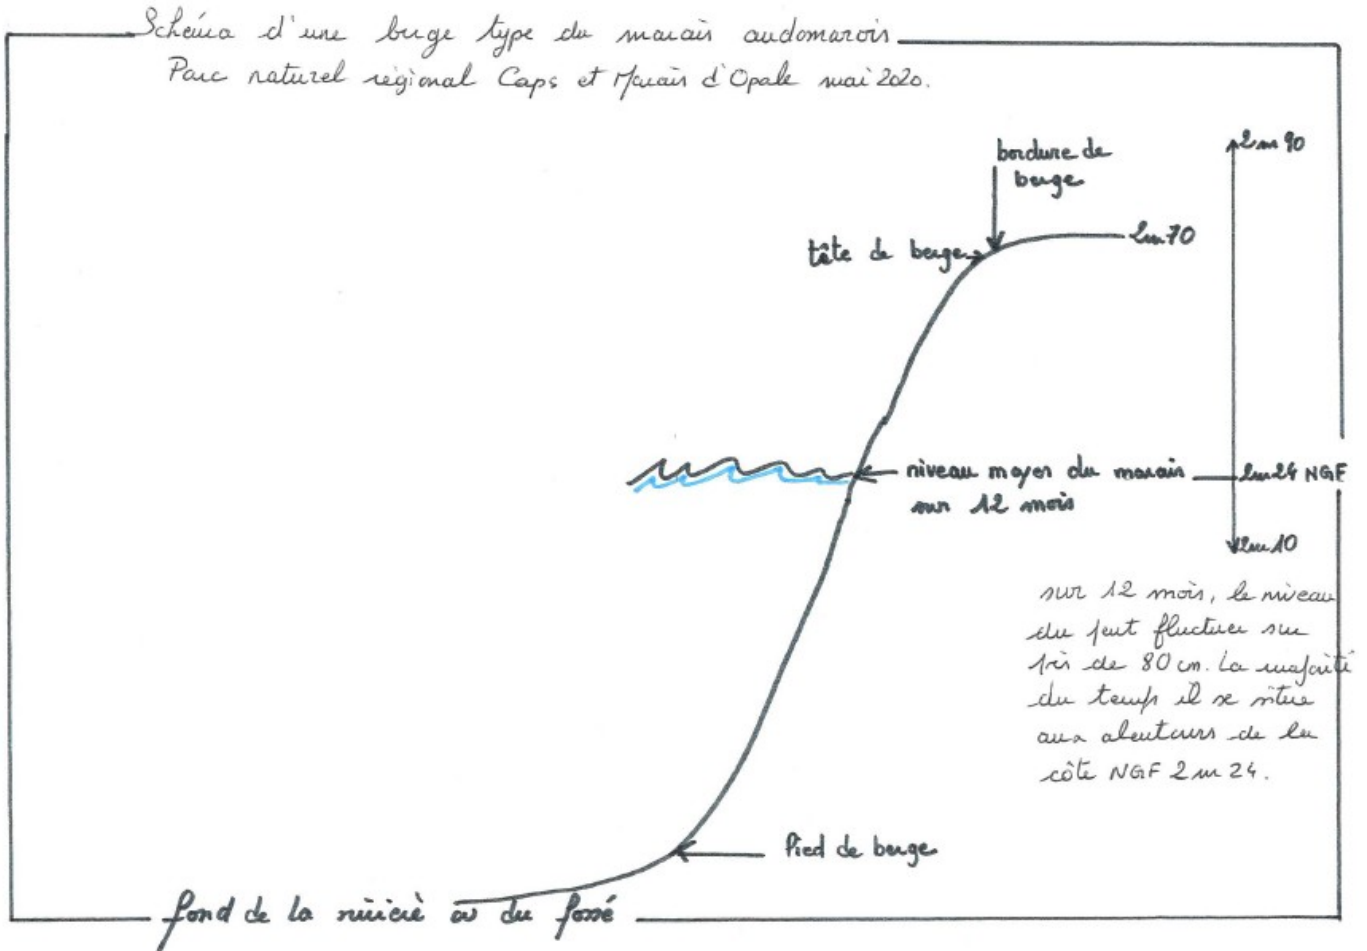 Schéma d'une berge type du marais audomarois
Parc naturel régional Caps et Marais d'Opale mai 2020.
2m90
bordure de
berge
2m70
tête de berge
niveau moyen du marais
sur 12 mois
2m24 NGF
2m10
sur 12 mois, le niveau
du peut fluctuer sur
près de 80 cm. La majorité
du temps il se situe
aux alentours de la
côte NGF 2m24.
Pied de berge
fond de la rivière ou du fossé